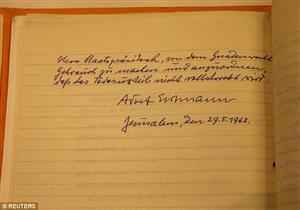 Herr Staatspräsident, von dem Gnadenrecht
Gebrauch zu machen und anzuordnen
daß das Todesurteil nicht vollstreckt wird
Adolf Eichmann
Jerusalem, den 29.5.1962.
© REUTERS